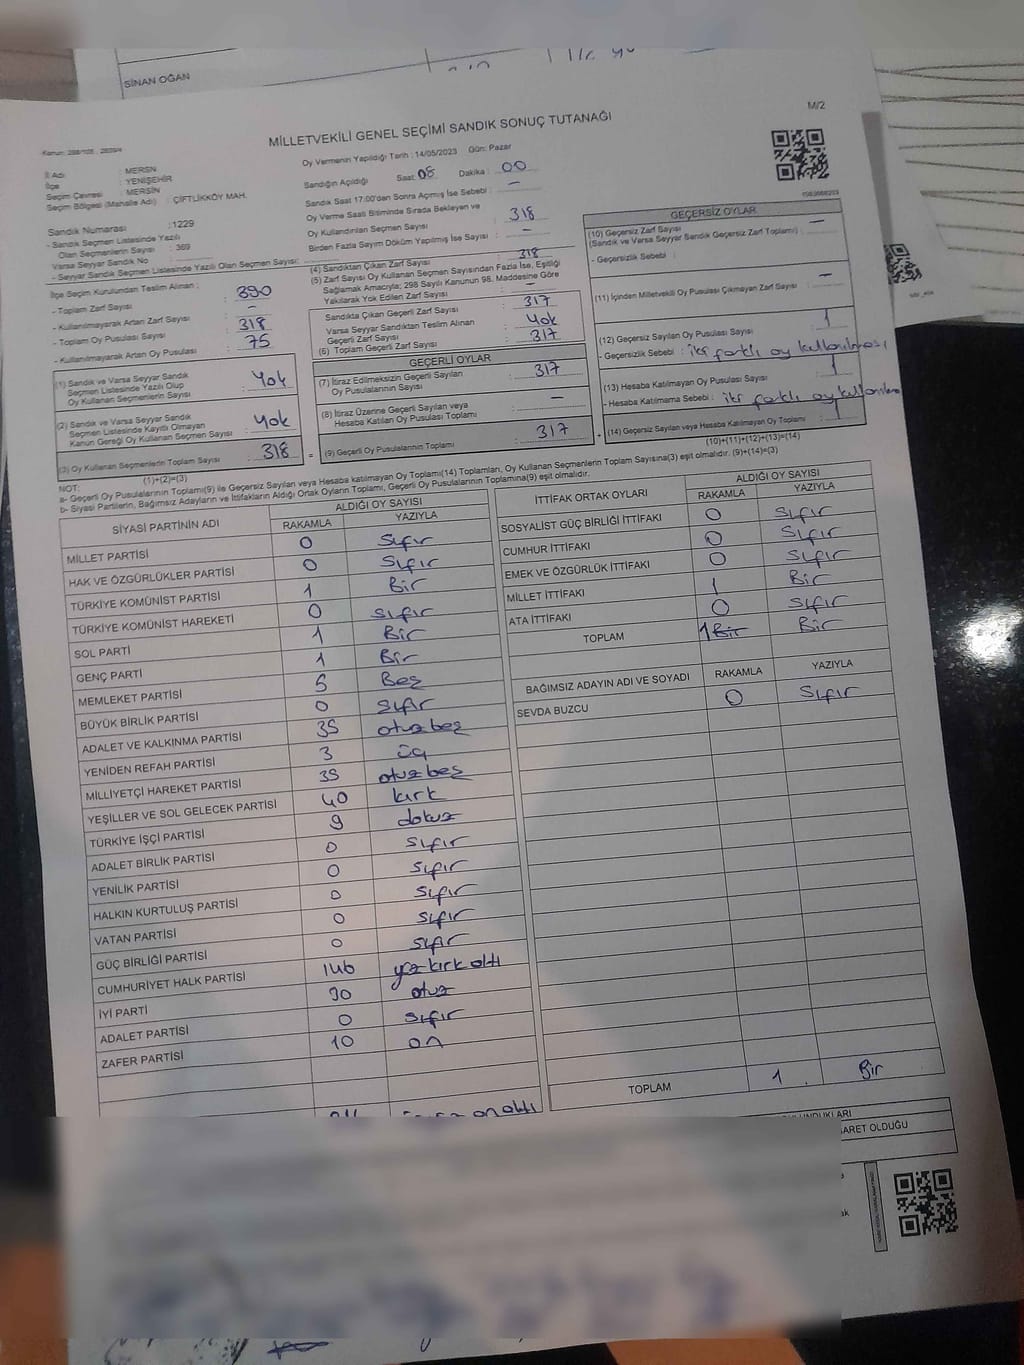 SİNAN OĞAN
M/2
MİLLETVEKİLİ GENEL SEÇİMİ SANDIK SONUÇ TUTANAĞI
İl Adı : MERSİN
İlçe : YENİŞEHİR
Seçim Çevresi : MERSİN
Seçim Bölgesi (Mahalle Adı) : ÇİFTLİKKÖY MAH.
Sandık Numarası : 1229
- Sandık Seçmen Listesinde Yazılı
Olan Seçmenlerin Sayısı : 369
Varsa Seyyar Sandık No :
- Seyyar Sandık Seçmen Listesinde Yazılı Olan Seçmen Sayısı:
Oy Vermenin Yapıldığı Tarih : 14/05/2023 Gün: Pazar
Sandığın Açıldığı Saat: 08 Dakika : 00
Sandık Saat 17:00'den Sonra Açılmış İse Sebebi : -
Oy Verme Saati Bitiminde Sırada Bekleyen ve
Oy Kullandırılan Seçmen Sayısı : 318
Birden Fazla Sayım Döküm Yapılmış İse Sayısı : -
İlçe Seçim Kurulundan Teslim Alınan :
- Toplam Zarf Sayısı : 390
- Kullanılmayarak Artan Zarf Sayısı : -
- Toplam Oy Pusulası Sayısı : 318
- Kullanılmayarak Artan Oy Pusulası : 75
(1) Sandık ve Varsa Seyyar Sandık
Seçmen Listesinde Yazılı Olup
Oy Kullanan Seçmenlerin Sayısı : Yok
(2) Sandık ve Varsa Seyyar Sandık
Seçmen Listesinde Kayıtlı Olmayan
Kanun Gereği Oy Kullanan Seçmen Sayısı : Yok
(3) Oy Kullanan Seçmenlerin Toplam Sayısı : 318
(1)+(2)=(3)
(4) Sandıktan Çıkan Zarf Sayısı : 318
(5) Zarf Sayısı Oy Kullanan Seçmen Sayısından Fazla İse, Eşitliği
Sağlamak Amacıyla; 298 Sayılı Kanunun 98. Maddesine Göre
Yakılarak Yok Edilen Zarf Sayısı : -
Sandıkta Çıkan Geçerli Zarf Sayısı : 317
Varsa Seyyar Sandıktan Teslim Alınan
Geçerli Zarf Sayısı : Yok
(6) Toplam Geçerli Zarf Sayısı : 317
GEÇERLİ OYLAR
(7) İtiraz Edilmeksizin Geçerli Sayılan
Oy Pusulalarının Sayısı : 317
(8) İtiraz Üzerine Geçerli Sayılan veya
Hesaba Katılan Oy Pusulası Toplamı : -
(9) Geçerli Oy Pusulalarının Toplamı : 317
GEÇERSİZ OYLAR
(10) Geçersiz Zarf Sayısı
(Sandık ve Varsa Seyyar Sandık Geçersiz Zarf Toplamı) : -
- Geçersizlik Sebebi :
(11) İçinden Milletvekili Oy Pusulası Çıkmayan Zarf Sayısı : -
(12) Geçersiz Sayılan Oy Pusulası Sayısı : 1
- Geçersizlik Sebebi : iki farklı oy kullanılması
(13) Hesaba Katılmayan Oy Pusulası Sayısı : 1
- Hesaba Katılmama Sebebi : iki farklı oy kullanılması
(14) Geçersiz Sayılan veya Hesaba Katılmayan Oy Toplamı :
(10)+(11)+(12)+(13)=(14)
NOT:
a- Geçerli Oy Pusulalarının Toplamı(9) ile Geçersiz Sayılan veya Hesaba katılmayan Oy Toplamı(14) Toplamları, Oy Kullanan Seçmenlerin Toplam Sayısına(3) eşit olmalıdır. (9)+(14)=(3)
b- Siyasi Partilerin, Bağımsız Adayların ve İttifakların Aldığı Ortak Oyların Toplamı, Geçerli Oy Pusulalarının Toplamına(9) eşit olmalıdır.
SİYASİ PARTİNİN ADI ALDIĞI OY SAYISI
RAKAMLA YAZIYLA
MİLLET PARTİSİ 0 Sıfır
HAK VE ÖZGÜRLÜKLER PARTİSİ 0 Sıfır
TÜRKİYE KOMÜNİST PARTİSİ 1 Bir
TÜRKİYE KOMÜNİST HAREKETİ 0 Sıfır
SOL PARTİ 1 Bir
GENÇ PARTİ 1 Bir
MEMLEKET PARTİSİ 5 Beş
BÜYÜK BİRLİK PARTİSİ 0 Sıfır
ADALET VE KALKINMA PARTİSİ 35 otuz beş
YENİDEN REFAH PARTİSİ 3 üç
MİLLİYETÇİ HAREKET PARTİSİ 35 otuz beş
YEŞİLLER VE SOL GELECEK PARTİSİ 40 kırk
TÜRKİYE İŞÇİ PARTİSİ 9 dokuz
ADALET BİRLİK PARTİSİ 0 Sıfır
YENİLİK PARTİSİ 0 Sıfır
HALKIN KURTULUŞ PARTİSİ 0 Sıfır
VATAN PARTİSİ 0 Sıfır
GÜÇ BİRLİĞİ PARTİSİ 0 Sıfır
CUMHURİYET HALK PARTİSİ 146 yüz kırk altı
İYİ PARTİ 30 otuz
ADALET PARTİSİ 0 Sıfır
ZAFER PARTİSİ 10 on
İTTİFAK ORTAK OYLARI ALDIĞI OY SAYISI
RAKAMLA YAZIYLA
SOSYALİST GÜÇ BİRLİĞİ İTTİFAKI 0 Sıfır
CUMHUR İTTİFAKI 0 Sıfır
EMEK VE ÖZGÜRLÜK İTTİFAKI 0 Sıfır
MİLLET İTTİFAKI 1 Bir
ATA İTTİFAKI 0 Sıfır
TOPLAM 1 Bir Bir
BAĞIMSIZ ADAYIN ADI VE SOYADI RAKAMLA YAZIYLA
SEVDA BUZCU 0 Sıfır
TOPLAM 1 Bir
ARET OLDUĞU